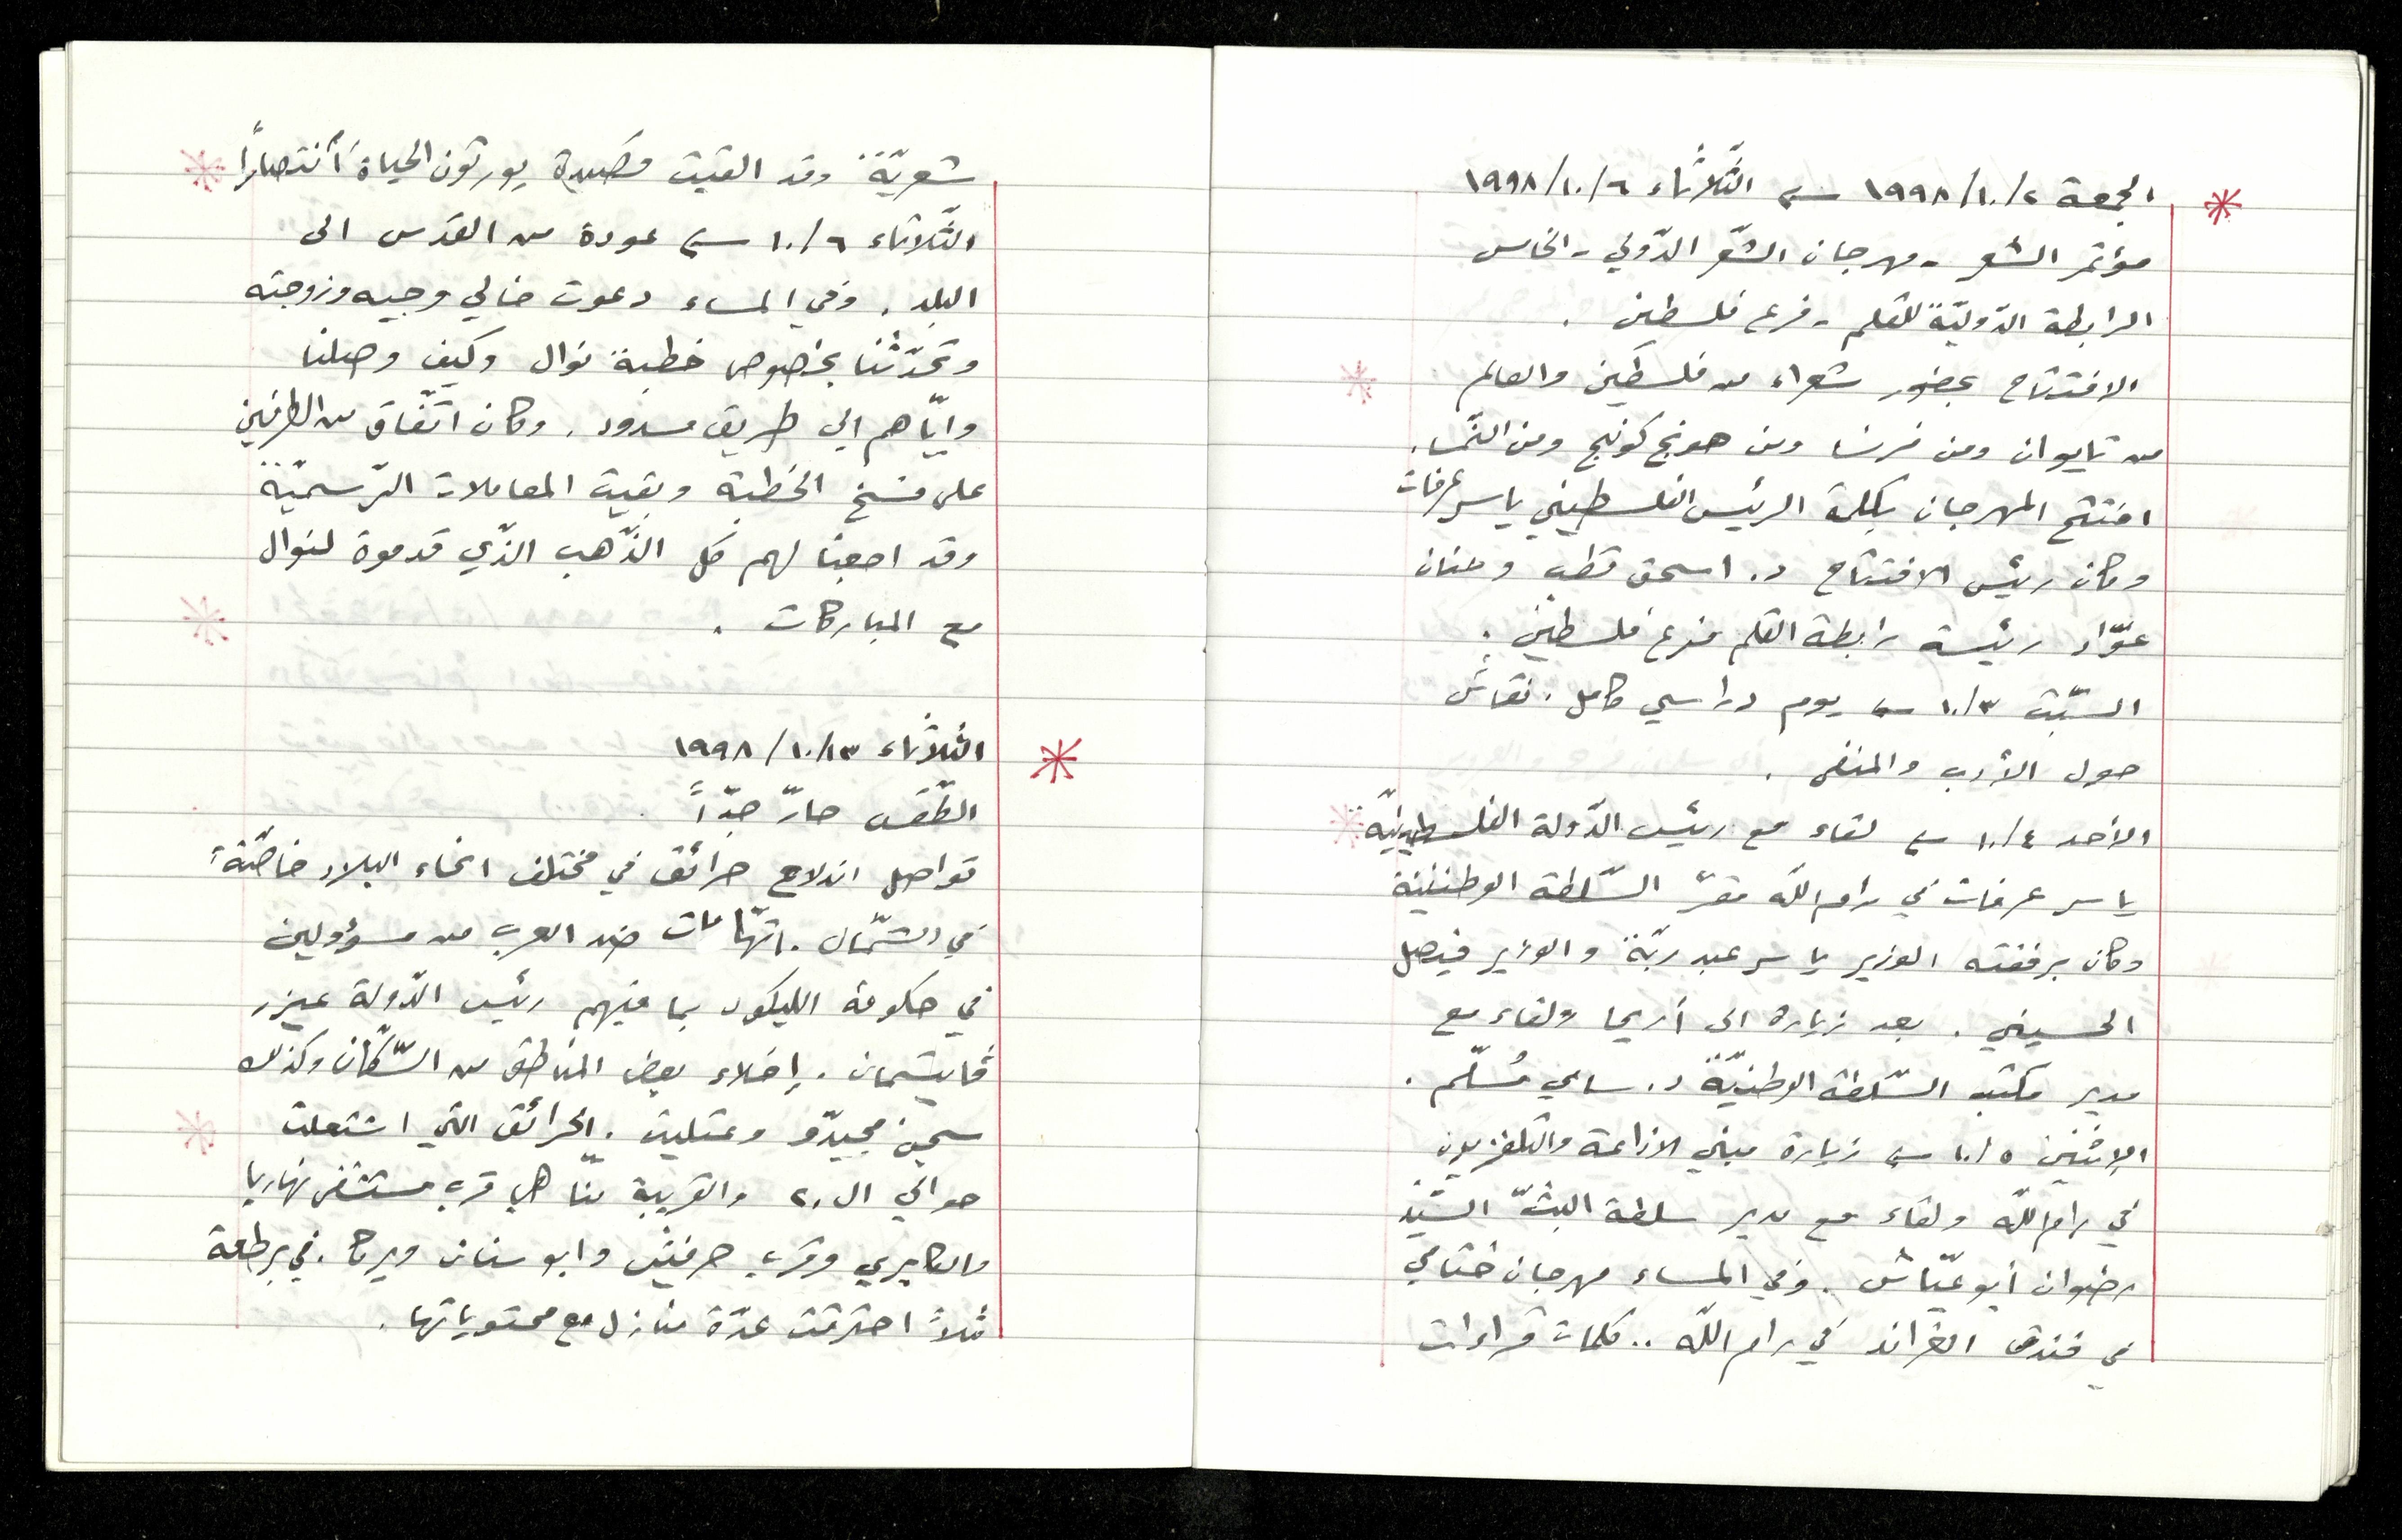 الجمعة ١٩٩٨/١٠/٢ ← الثّلاثاء ١٩٩٨/١٠/٦
مؤتمر الشعر - مهرجان الشّعر الدّولي - الخامس
الرابطة الدّوليّة للقلم - فرع فلسطين .
الافتتاح بحضور شعراء من فلسطين والعالم
من تايوان ومن فرنسا ومن هونج كونج ومن النّمسا .
افتتح المهرجان بكلمة الرئيس الفلسطيني ياسر عرفات
وكان رئيس الافتتاح د. اسحق قطب وحنان
عوّاد رئيسة رابطة القلم فرع فلسطين .
السّبت ١٠/٣ ← يوم دراسي كامل . نقاش
حول الأدب والمنفى .
الأحد ١٠/٤ ← لقاء مع رئيس الدّولة الفلسطينيّة
ياسر عرفات في رام الله مقرّ السّلطة الوطنيّة
وكان برفقته الوزير ياسر عبد ربّه والوزير فيصل
الحسيني . بعد زيارة الى أريحا ولقاء مع
مدير مكتب السّلطة الوطنيّة د. سامي مُسلّم .
الإثنين ١٠/٥ ← زيارة مبنى الاذاعة والتلفزيون
في رام اللّه ولقاء مع مدير سلطة البثّ السّيّد
رضوان أبو عيّاش . وفي المساء مهرجان ختامي
في فندق الغراند في رام اللّه .. كلمات قراءات
شعريّة وقد القيت قصيدة يورقون الحياة أنتصارًا
الثّلاثاء ١٠/٦ ← عودة من القدس الى
البلد . وفي المساء دعوت خالي وجيه وزوجته
وتحدّثنا بخصوص خطبة نوال وكيف وصلنا
وايّاهم الى طريق مسدود . وكان اتّفاق من الطرفين
على فسخ الخطبة وبقيت المعاملات الرّسميّة
وقد ارجعنا لهم كل الذّهب الذّي قدموة لنوال
مع المباركات .
الثلاثاء ١٩٩٨/١٠/١٣
الطّقس حارّ جدّاً .
تواصل اندلاع حرائق في مختلف انحاء البلاد خاصّةً
في الشّمال . اتّهامات ضد العرب من مسؤولين
في حكومة الليكود بما فيهم رئيس الدّولة عيزر
ڤايتسمان . إخلاء بعض المناطق من السّكّان وكذلك
سجن مجيدّو وعتليت . الحرائق التي اشتعلت
حوالي ال ٢٠٠ والقريبة منّا هي قرب مستشفى نهاريا
والكابري وقرب حرفيش وابو سنان ويركا . في برطعة
مثلاً احترقت عدّة منازل مع محتوياتها .